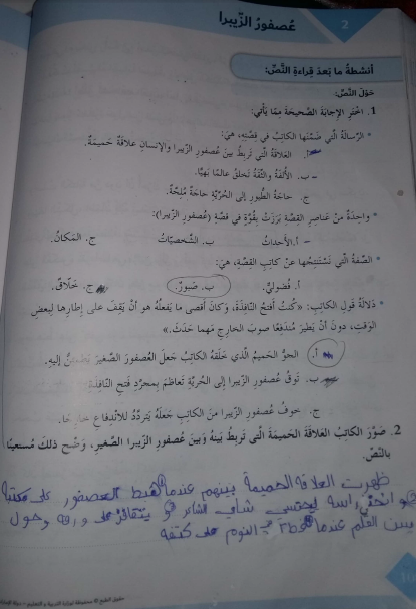 2
عُصفورُ الزّيبرا
أنشطةُ ما بَعدَ قِراءةِ النَّصِّ:
حَوْلَ النَّصِّ:
1. اخْتَرِ الإجابَةَ الصَّحيحَةَ مِمّا يَأتي:
* الرِّسالةُ الَّتي ضَمَّنَها الكاتِبُ في قِصَّتِهِ، هيَ:
أ. العَلاقةُ الَّتي تَربِطُ بَينَ عُصفورِ الزّيبرا والإنسانِ علاقَةٌ حَميمَةٌ.
ب. الأُلفَةُ والثِّقةُ تَخلقُ عالمًا بَهيًّا.
ج. حاجَةُ الطُّيورِ إلى الحُرّيَّةِ حاجَةٌ مُلِحَّةٌ.
* واحِدَةٌ مِنْ عَناصِرِ القِصَّةِ بَرَزَتْ بِقُوَّةٍ في قصّةِ (عُصفورِ الزّيبرا):
أ. الأحداثُ ب. الشَّخصيّاتُ ج. المَكانُ.
* الصِّفةُ الَّتي نَستَنتِجُها عَنْ كاتِبِ القِصَّةِ، هيَ:
أ. فُضوليٌّ. ب. صَبورٌ. ج. خَلّاقٌ.
* دَلالةُ قولِ الكاتِبِ: «كُنتُ أفتَحُ النّافِذةَ، وَكانَ أقصى ما يَفعلُهُ هو أنْ يَقِفَ على إطارِها لبعضِ
الوَقتِ، دونَ أنْ يَطيرَ مُندَفِعًا صوبَ الخارِجِ مَهما حَدَثَ.»
أ. الجوُّ الحَميمُ الَّذي خَلَقَهُ الكاتِبُ جَعلَ العُصفورَ الصَّغيرَ يَطمئنُّ إليهِ.
ب. تَوقُ عُصفورِ الزّيبرا إلى الحُرّيّةِ تَعاظَمَ بِمجرَّدِ فَتحِ النّافِذةِ.
ج. خوفُ عُصفورِ الزّيبرا منَ الكاتِبِ جَعلَهُ يَتردَّدُ للاندِفاعِ خارِجًا.
2. صَوَّرَ الكاتِبُ العَلاقةَ الحَميمةَ الَّتي تَربِطُ بَينَهُ وَبَينَ عُصفورِ الزّيبرا الصَّغيرِ، وَضّح ذلكَ مُستَعينًا
بالنَّصِّ.
ظهرت العلاقة الحميمة بينهم عندما هبط العصفور على مكتبة
انحنى راسه ليحتسي شاي الشاعر يتقافز على ورقه وحول
سن القلم عندما النوم على كتفه